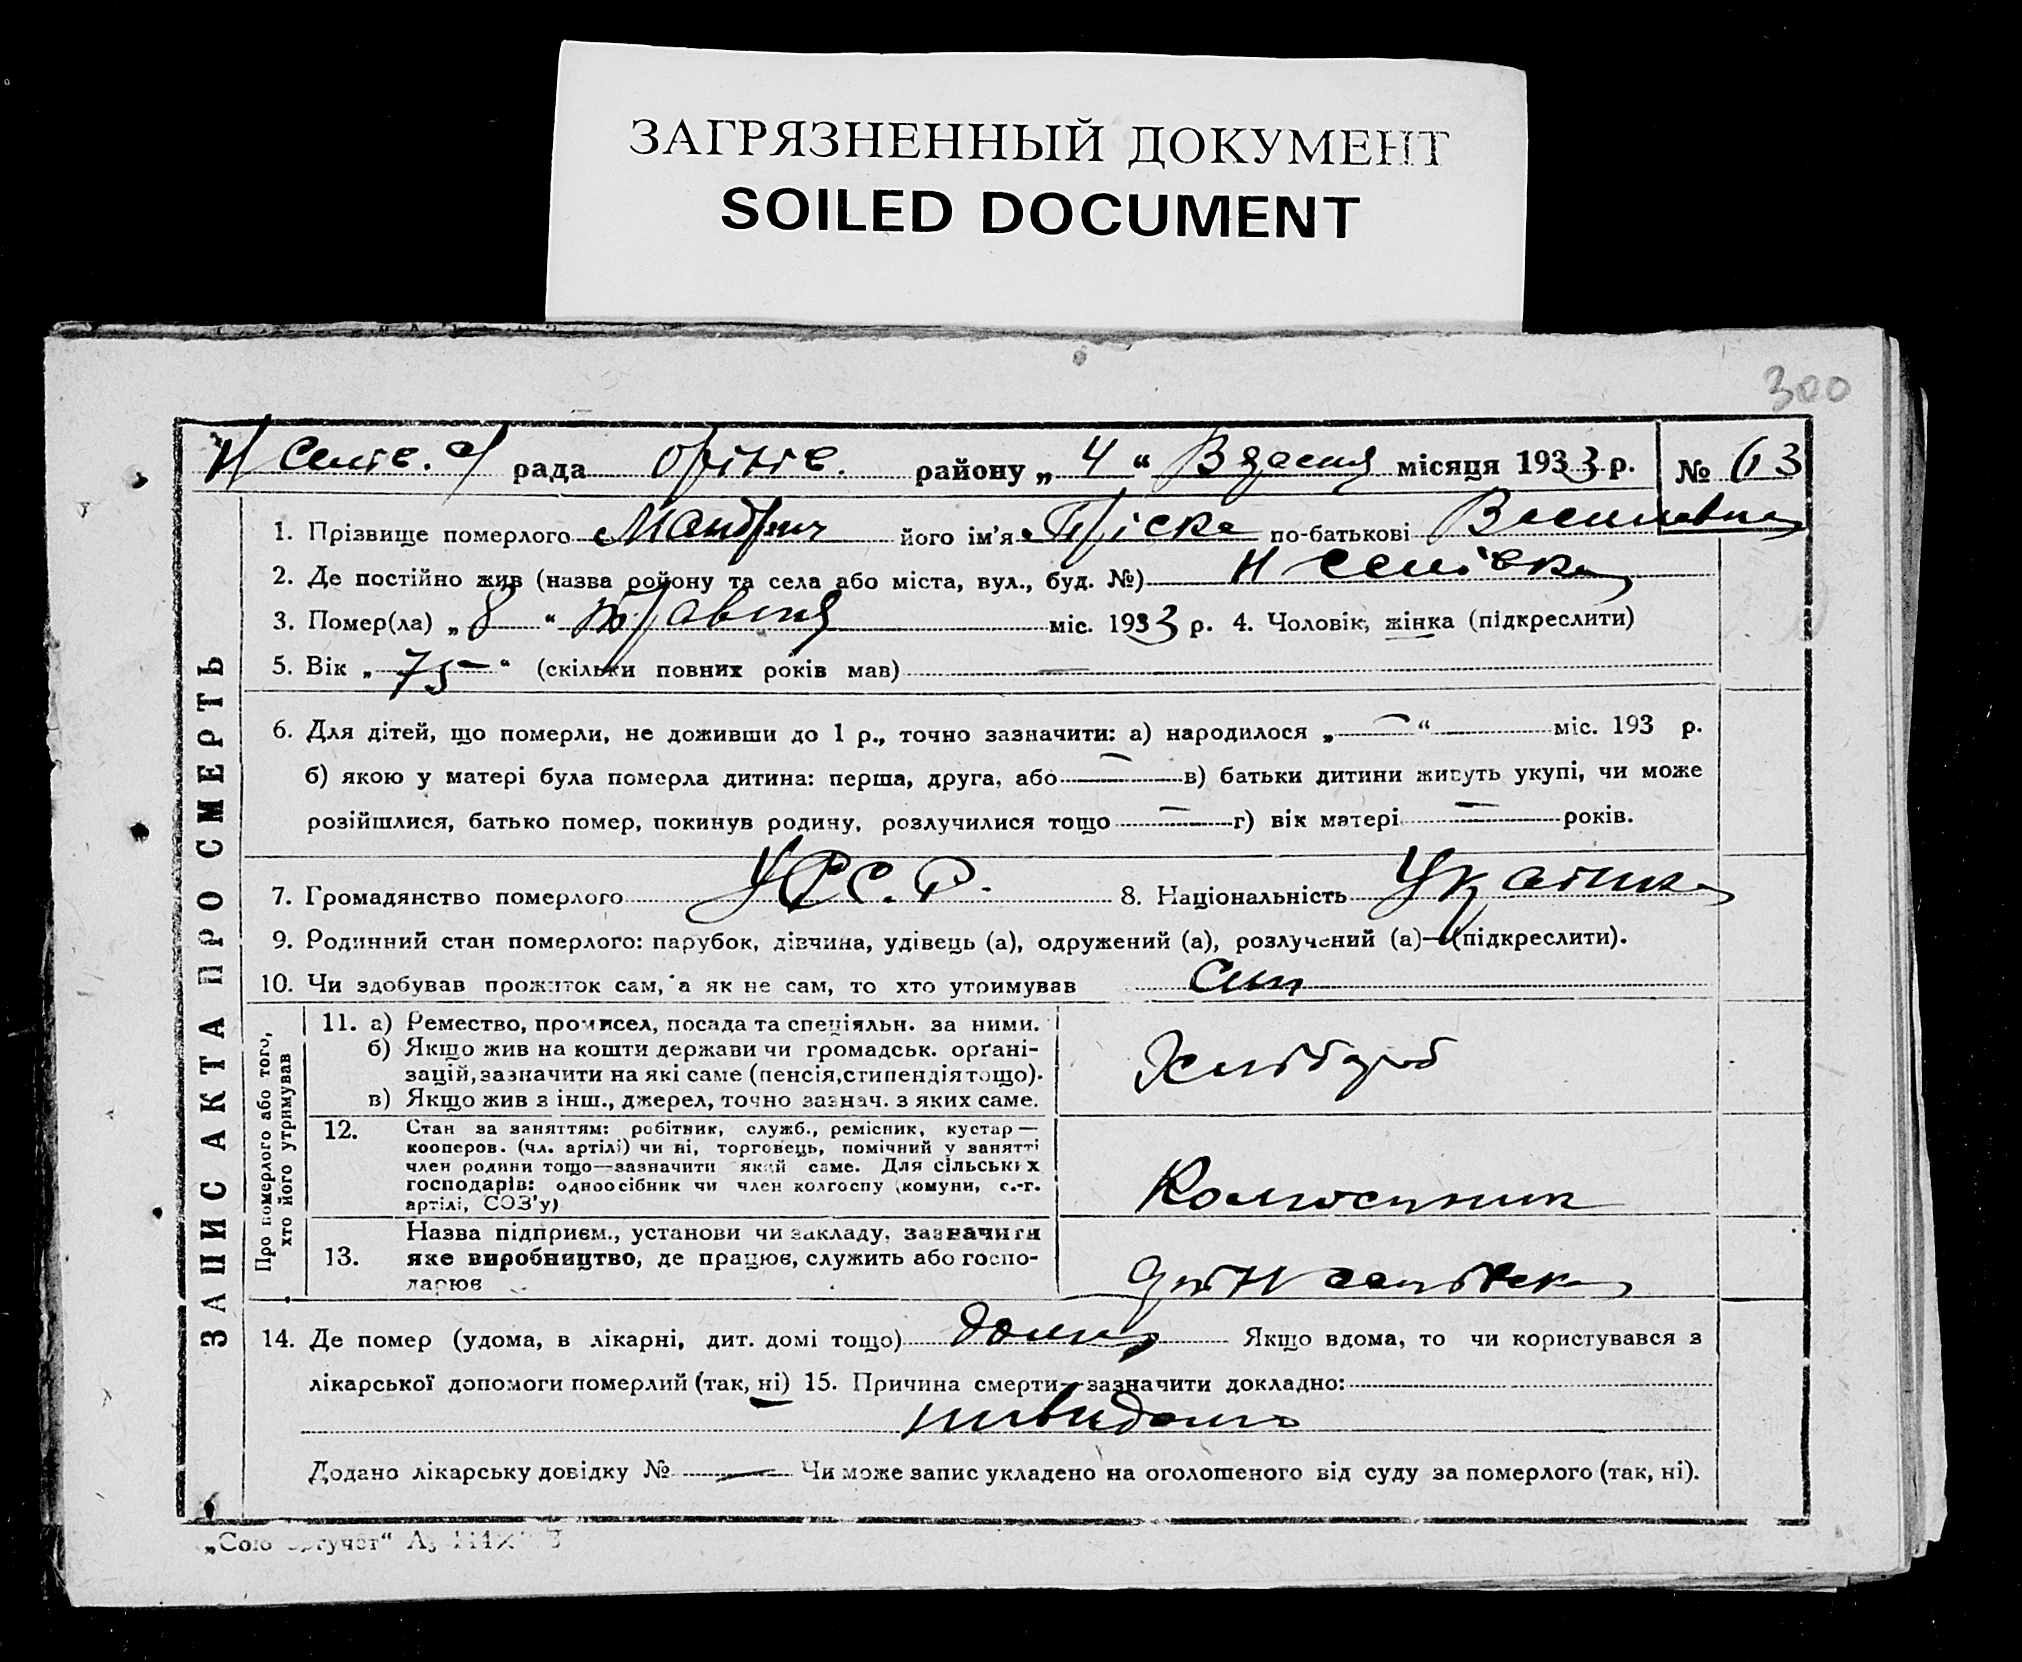 ЗАГРЯЗНЕННЫЙ ДОКУМЕНТ
SOILED DOCUMENT
300
рада району „ 4 “ місяця 1933 р. № 63
1. Прізвище померлого його ім'я Пріска по-батькові Василівна
2. Де постійно жив (назва району та села або міста, вул., буд. №) Н Селівка
3. Помер(ла) „ 8 “ Травня міс. 1933 р. 4. Чоловік, жінка (підкреслити)
5. Вік „ 75 “ (скільки повних років мав)
6. Для дітей, що померли, не доживши до 1 р., точно зазначити: а) народилося „ — “ міс. 193 р.
б) якою у матері була померла дитина: перша, друга, або — в) батьки дитини живуть укупі, чи може
розійшлися, батько помер, покинув родину, розлучилися тощо — г) вік матері — років.
7. Громадянство померлого УРС.Р. 8. Національність Українка
9. Родинний стан померлого: парубок, дівчина, удівець (а), одружений (а), розлучений (а)—(підкреслити).
10. Чи здобував прожиток сам, а як не сам, то хто утримував син
ЗАПИС АКТА ПРО СМЕРТЬ
Про померлого або того, хто його утримував
11. а) Ремество, промисел, посада та спеціяльн. за ними.
б) Якщо жив на кошти держави чи громадськ. орґані-
зацій, зазначити на які саме (пенсія, стипендія тощо).
в) Якщо жив з інш., джерел, точно зазнач. з яких саме.
Хлібороб
12. Стан за заняттям: робітник, служб., ремісник, кустар—
кооперов. (чл. артілі) чи ні, торговець, помічний у занятті
член родини тощо—зазначити який саме. Для сільських
господарів: одноосібник чи член колгоспу (комуни, с.-г.
артілі, СОЗ'у)
Колгоспник
13. Назва підприєм., установи чи закладу, зазначити
яке виробництво, де працює, служить або госпо-
дарює
14. Де помер (удома, в лікарні, дит. домі тощо) дома Якщо вдома, то чи користувався з
лікарської допомоги померлий (так, ні) 15. Причина смерти—зазначити докладно:
невидомо
Додано лікарську довідку № — Чи може запис укладено на оголошеного від суду за померлого (так, ні).